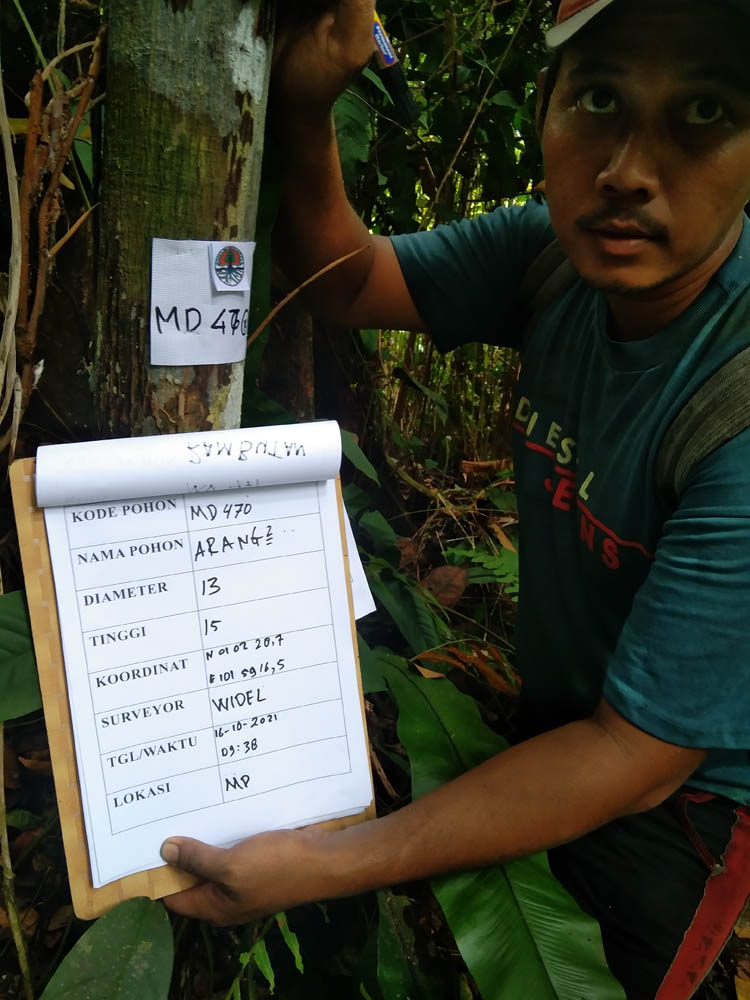 MD 470
RAMBUTAN
KODE POHON MD 470
NAMA POHON ARANG2
DIAMETER 13
TINGGI 15
KOORDINAT N 01 02 20,7
E 101 59 16,5
SURVEYOR WIDEL
TGL/WAKTU 16-10-2021
09:38
LOKASI MD
DIESEL
JEANS